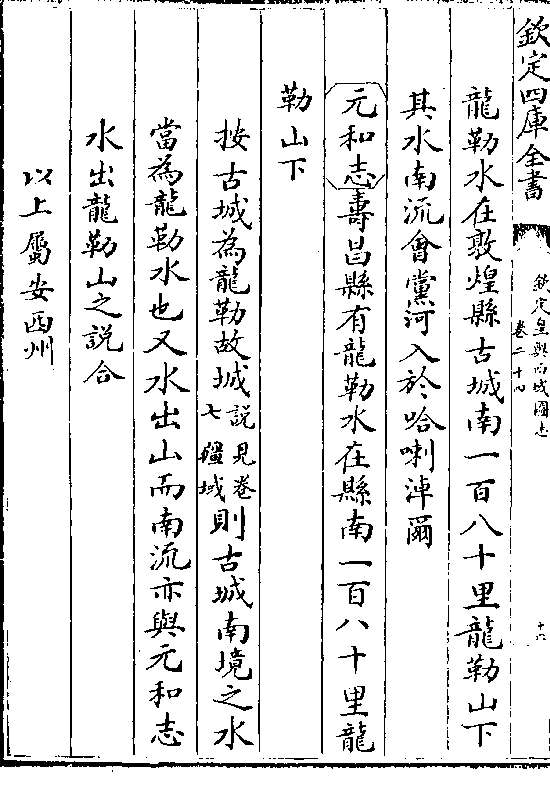 欽定四庫全書
欽定皇輿西域圖志
卷二十四
龍勒水在敦煌縣古城南一百八十里龍勒山下
其水南流會黨河入於哈喇淖爾
元和志壽昌縣有龍勒水在縣南一百八十里龍
勒山下
按古城為龍勒故城說見卷七疆域則古城南境之水
當為龍勒水也又水出山而南流亦與元和志
水出龍勒山之説合
以上屬安西州